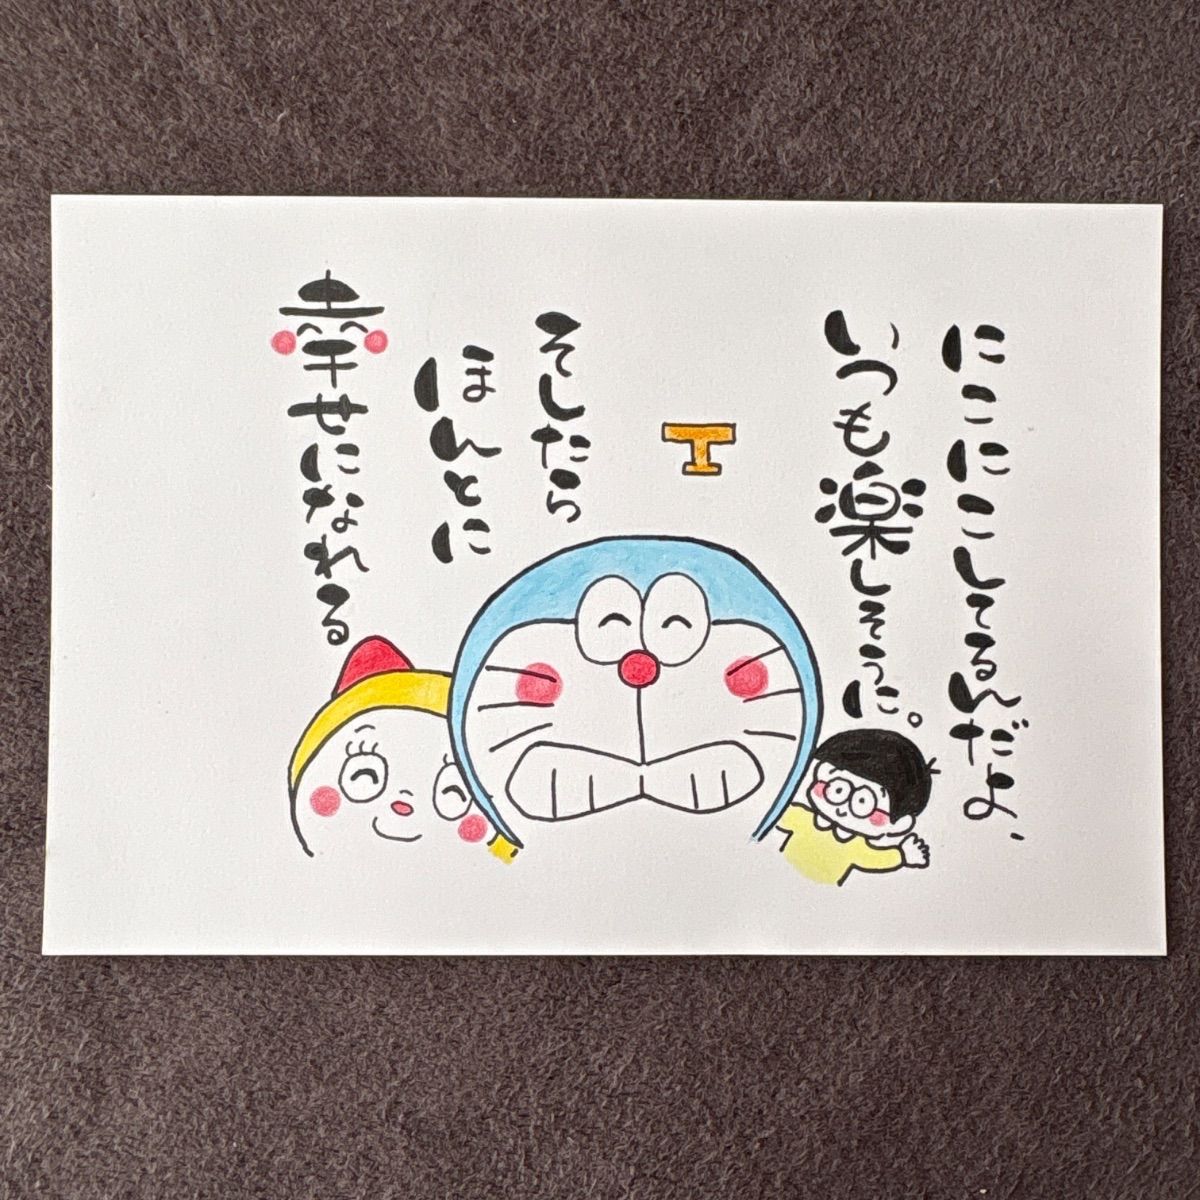 にこにこしてるんだよ、
いつも楽しそうに。
そしたら
ほんとに
幸せになれる